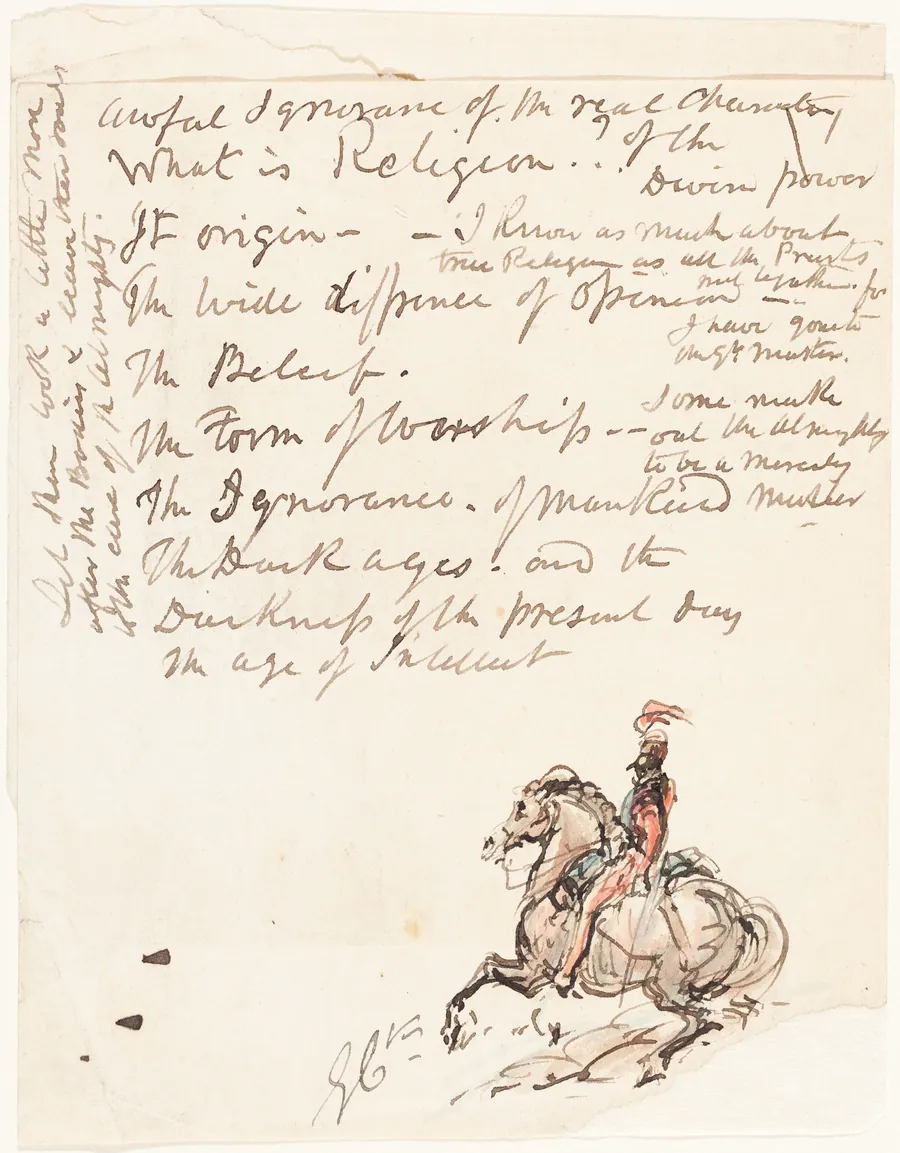 awful Ignorance of the real Character
of the
Divine power
What is Religion . . ?
It origin – 
– I know as much about
true Religion as all the Priests
put together. for
I have gone to
the Gt Master.
The wide diffrence of Opinion –
The Beleif.
The Form of Worship – –
Some make
out the Almighty
to be a
Master
The Ignorance . of Mankind
The Dark ages . and the
Darkness of the present day
the age of Intellect
Let them look a little more
after the &
the care of the Almighty.
GCk